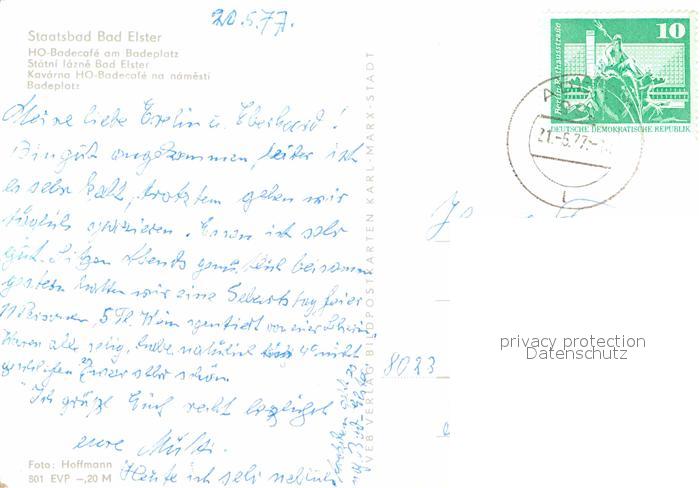 20.5.77.
Staatsbad Bad Elster
HO-Badecafé am Badeplatz
Státní lázně Bad Elster
Kavárna HO-Badecafé na náměstí
Badeplatz
Meine liebe Evelin u. Eberhard!
Bin gut angekommen, leider ist
es sehr kalt, trotzdem gehen wir
täglich spazieren. Essen ist sehr
gut. Sitzen Abends gemütlich beisammen
gestern hatten wir eine Geburtstagfeier
11 Personen, 5 Fl.
waren alle habe natürlich nicht
war sehr schön.
Ich grüße Euch recht herzlichst
eure Mutti.
Heute ist sehr neblich
Foto: Hoffmann
S01 EVP -,20 M
VEB VERLAG BILDPOSTKARTEN KARL-MARX-STADT
Bad Elster
10
Berlin, Rathausstraße
DEUTSCHE DEMOKRATISCHE REPUBLIK
21.-5.77.-
8023
privacy protection
Datenschutz